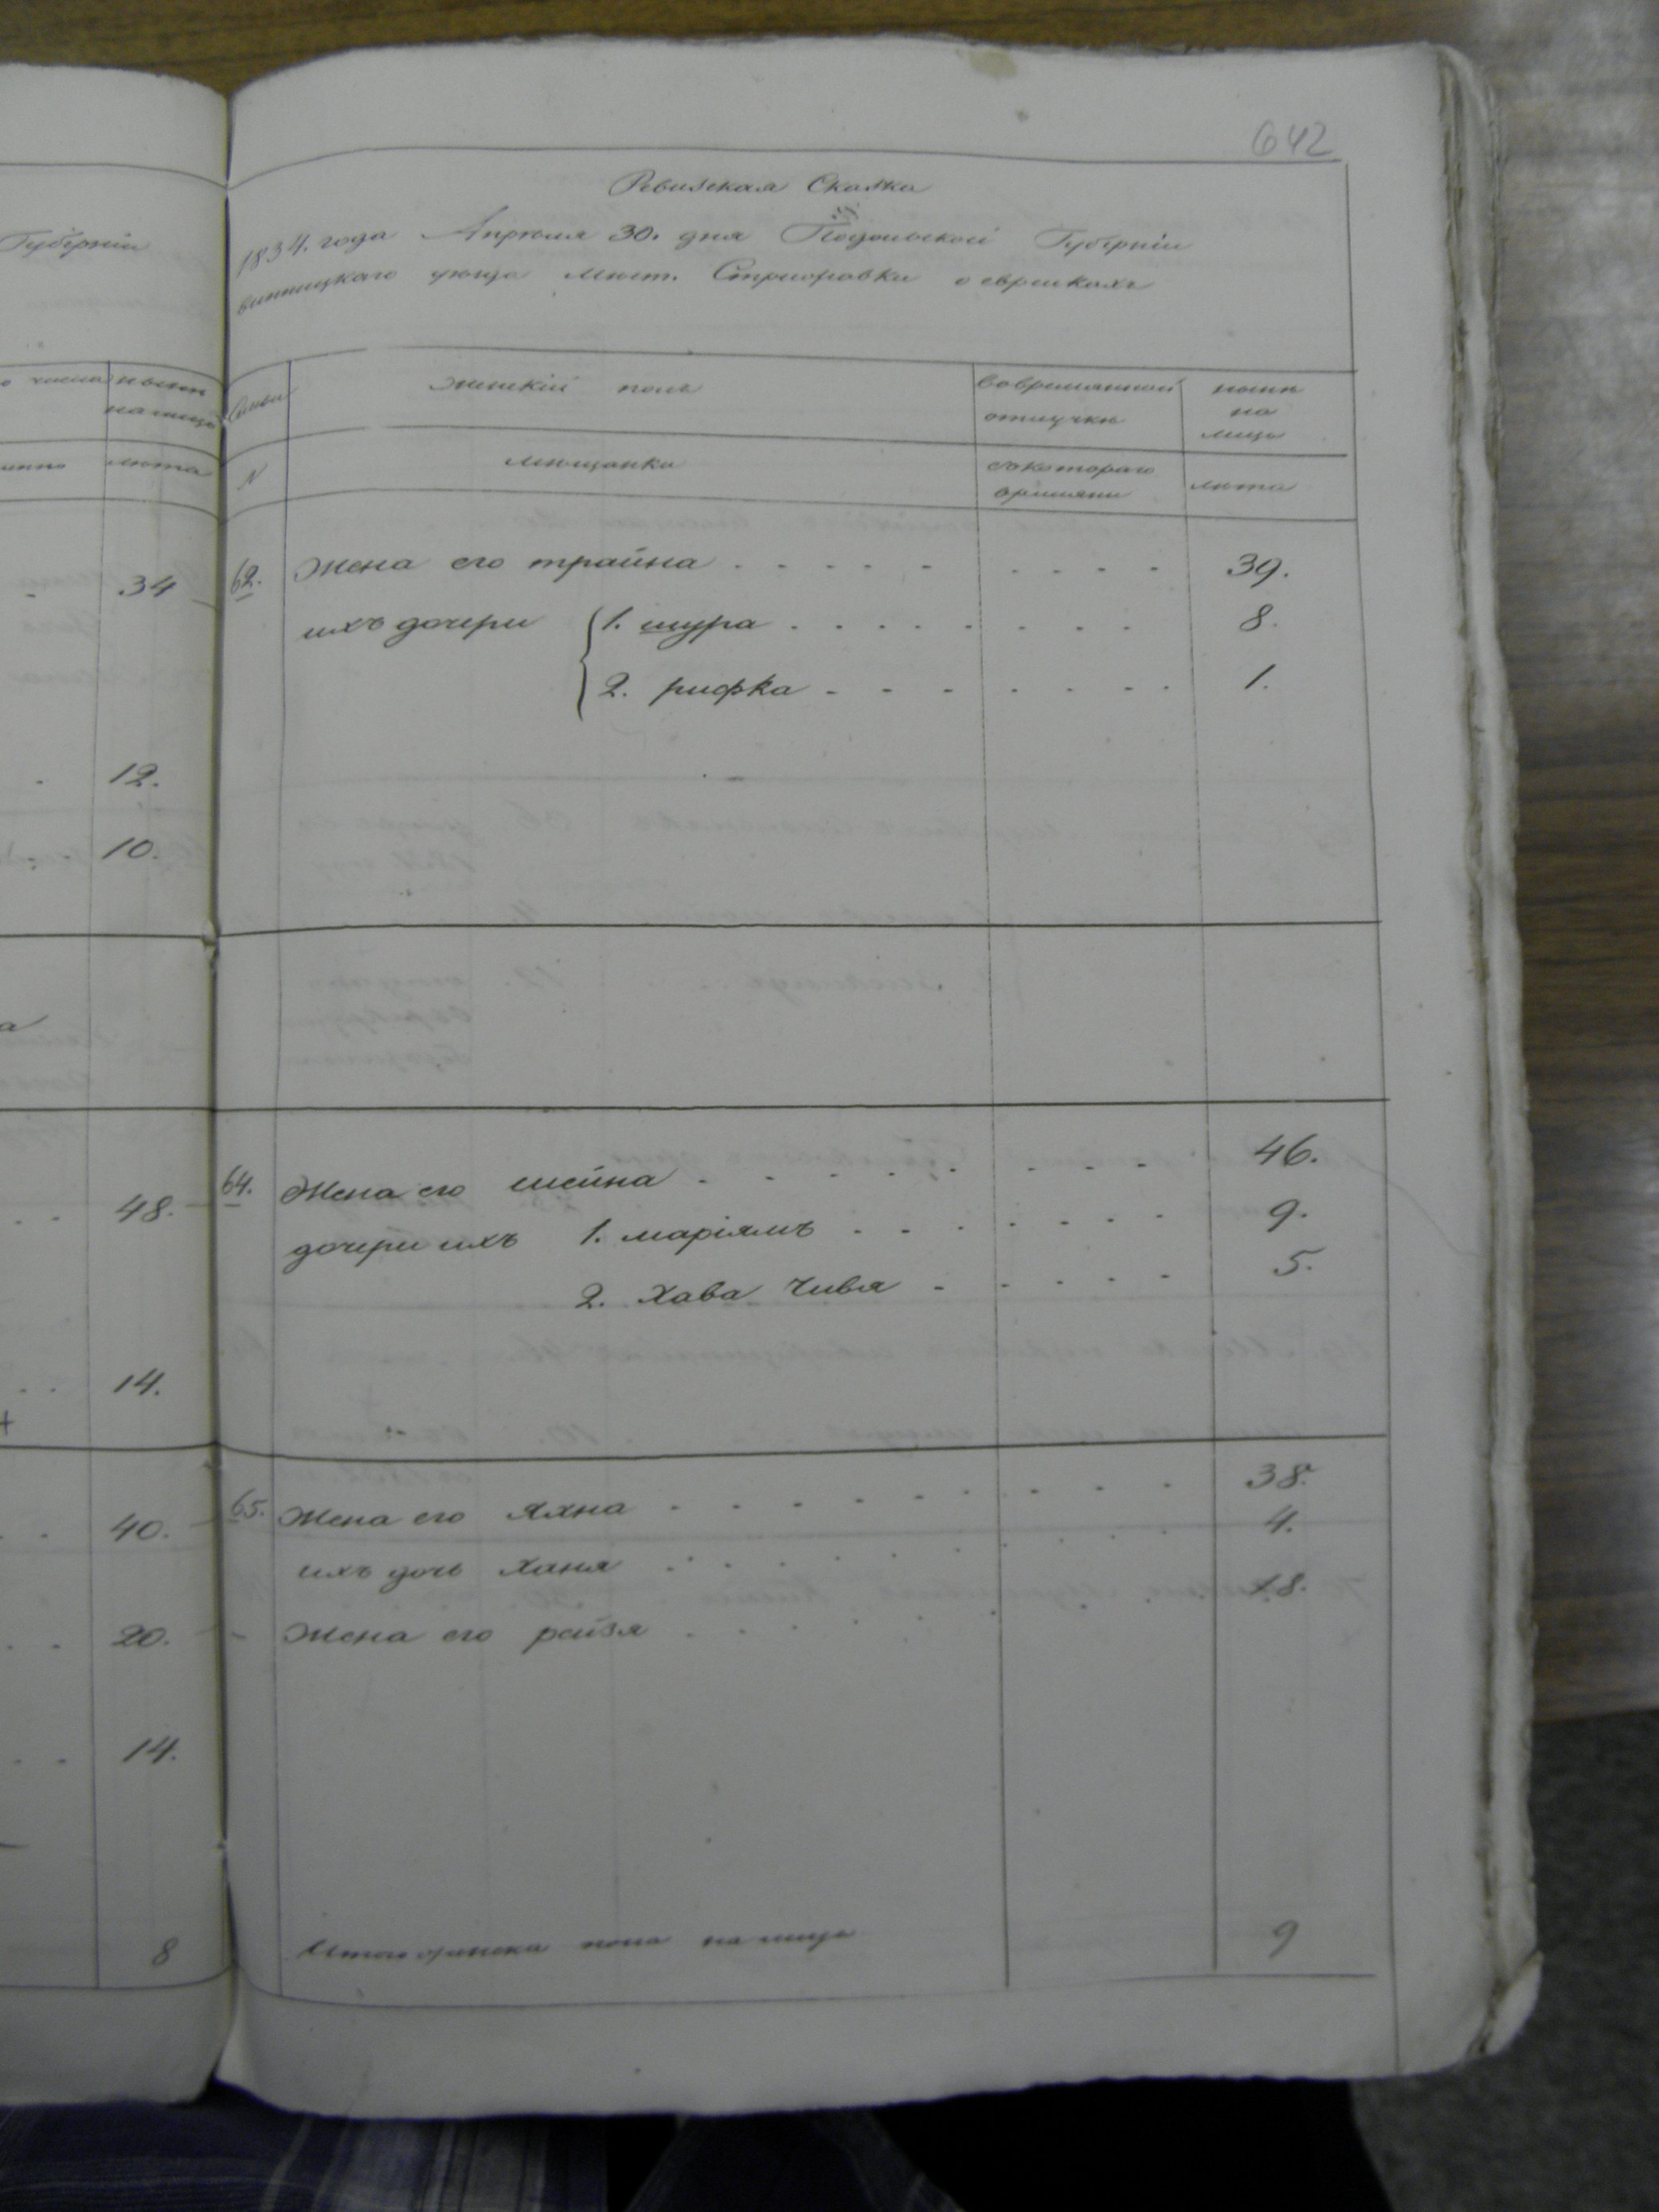 642
Губерніи
Ревизская Сказка
1834. года Апреля 30. дня Подольской Губерніи
винницкаго уезда мест. Стрижавки о еврейкахъ
числа ныне на лицо
Семьи женскій полъ вовремянной отлучке ныне на лицо
лета
N мещанки съ котораго времяни лета
.34 62. Жена его трайна 39.
ихъ дочери 1. шура 8.
2. рифка 1.
12.
10.
а
48. 64. Жена его шейна 46.
дочери ихъ 1. маріямъ 9.
2. Хава Чивя 5.
14.
40. 65. Жена его яхна 38.
ихъ дочь ханя 4.
20. - Жена его рейзя 18.
14.
8 Итого женска пола на лицо 9